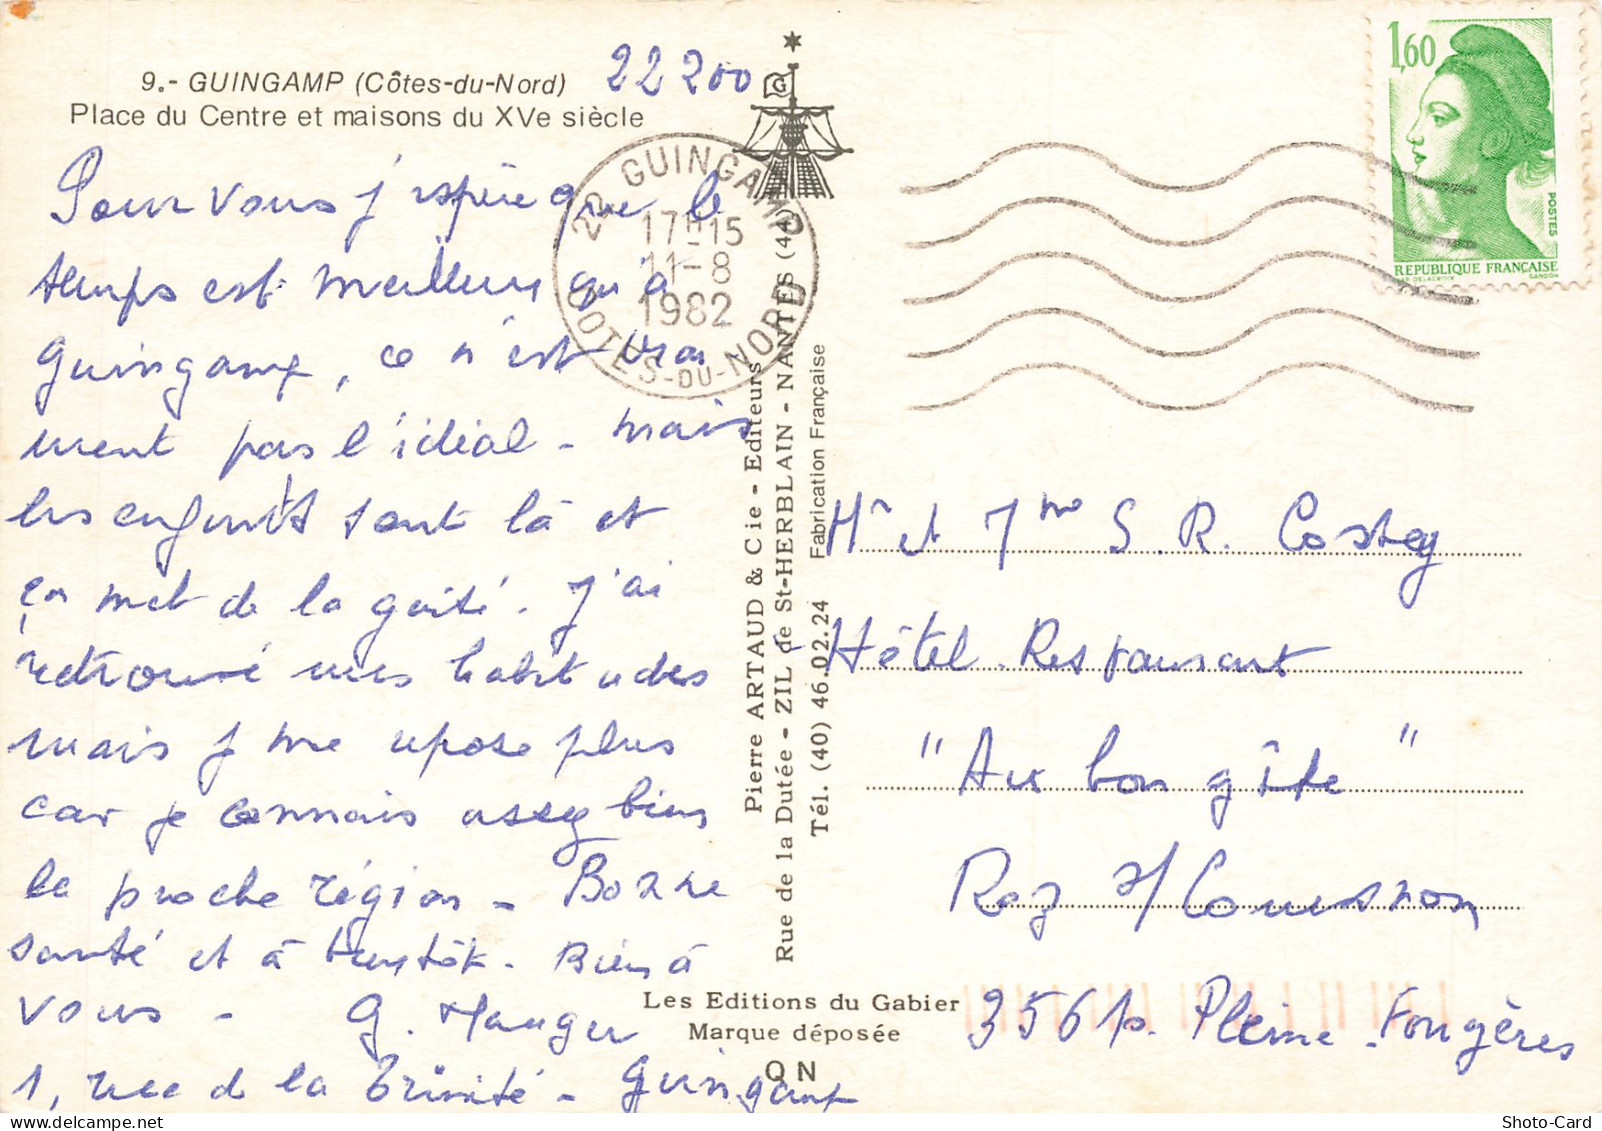 9.- GUINGAMP (Côtes-du-Nord)
22200
Place du Centre et maisons du XVe siècle
Pour vous j'espère que le
temps est meilleur qu'à
Guingamp, ce n'est vrai
ment pas l'idéal - mais
les enfants sont là et
ça met de la gaité. J'ai
retrouvé mes habitudes
mais je me repose plus
car je connais assez bien
la proche région - Bonne
santé et à bientôt. Bien à
vous - G. Mauger
1, rue de la Trinité - Guingamp
22 GUINGAMP
17H15
11-8
1982
COTES-DU-NORD
G
Pierre ARTAUD & Cie - Editeurs
Rue de la Dutée - ZIL de St-HERBLAIN - NANTES (44)
Tél. (40) 46.02.24 Fabrication Française
Les Editions du Gabier
Marque déposée
QN
1,60
POSTES
REPUBLIQUE FRANCAISE
DELACROIX
GANDON
Mr et Mme S. R. Costey
Hôtel-Restaurant
"Aux bon gîte"
Roz s/Couesnon
35610 Pleine-Fougères
Shoto-Card